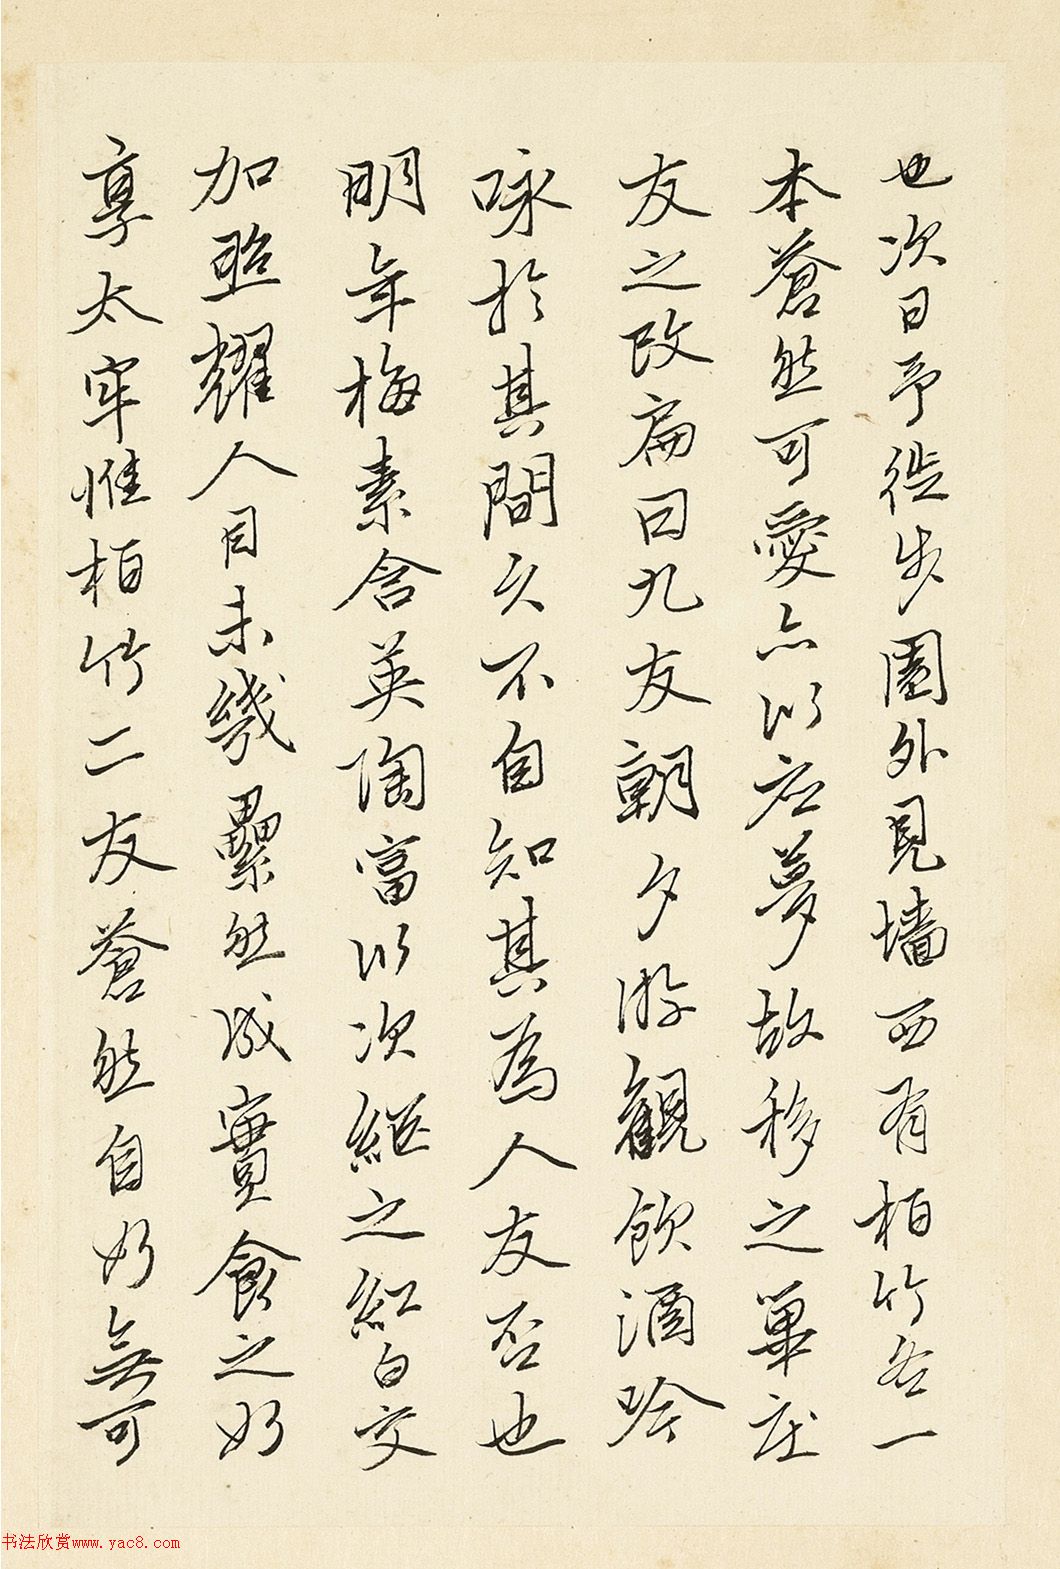 也次日予徙步園外見墻西有柏竹各一
本蒼然可愛亦以应夢故移之單庄
友之改扁曰九友朝夕游観飲酒吟
咏於其間久不自知其為人友否也
明年梅素含英陶富以次継之紅白交
加照耀人目未幾纍然成實食之如
享太牢惟柏竹二友蒼然自如無可
书法欣赏www.yac8.com